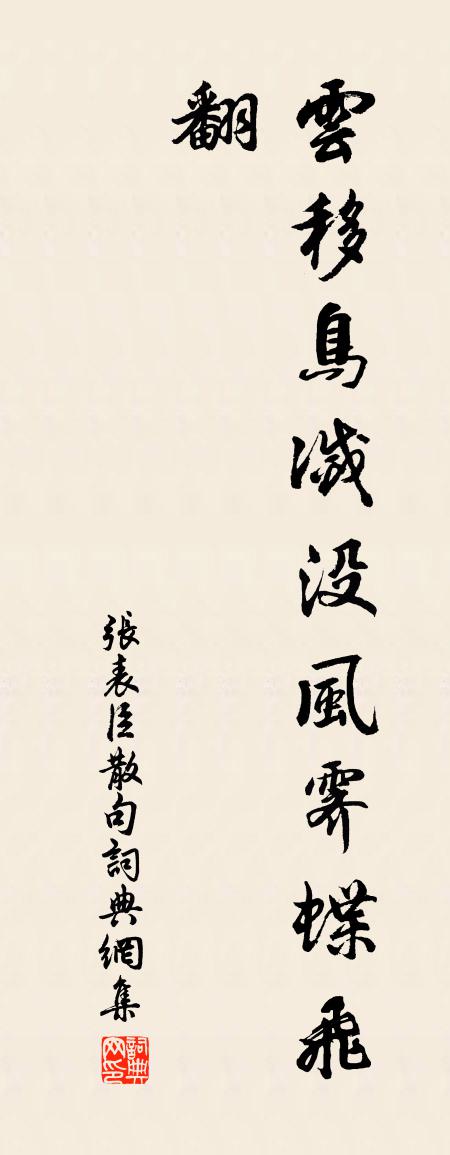 雲移鳥滅没風霽蝶飛
翻
張表臣散句詞典網集
詞典網印